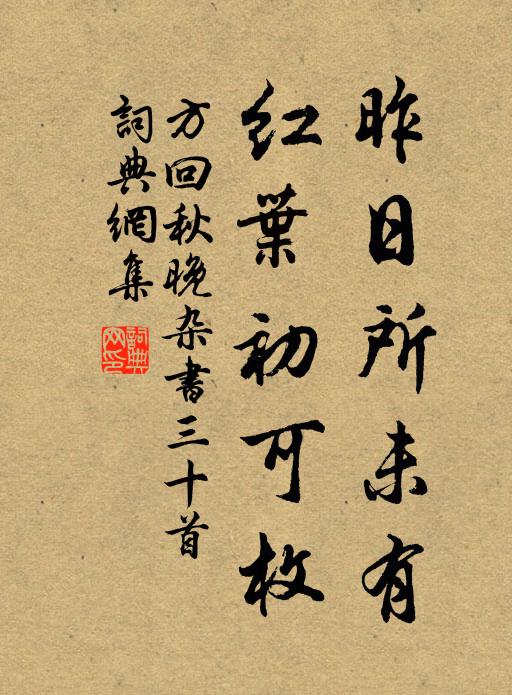 昨日所未有
紅葉初可枚
方回秋晚杂書三十首
詞典網集
詞典网印